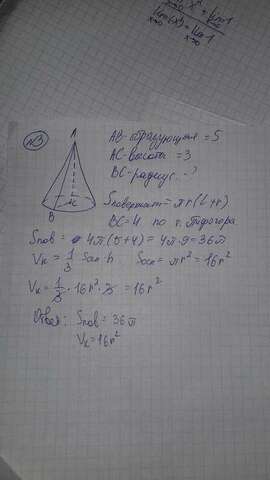 lim x² = lim 1
x→0 x→0
lim(x²) = lim 1
x→0 x→0
№3
A
B
C
AB-образующая = 5
AC-высота = 3
BC-радиус - ?
Sповерхност = πr(L+r)
BC=4 по т. Пифагора
Sпов = 4π(5+4) = 4π·9=36π
Vк = 1/3 Sосн h Sосн = πr² = 16r²
Vк = 1/3 · 16r² · 3 = 16r²
Ответ: Sпов = 36π
Vк = 16r²